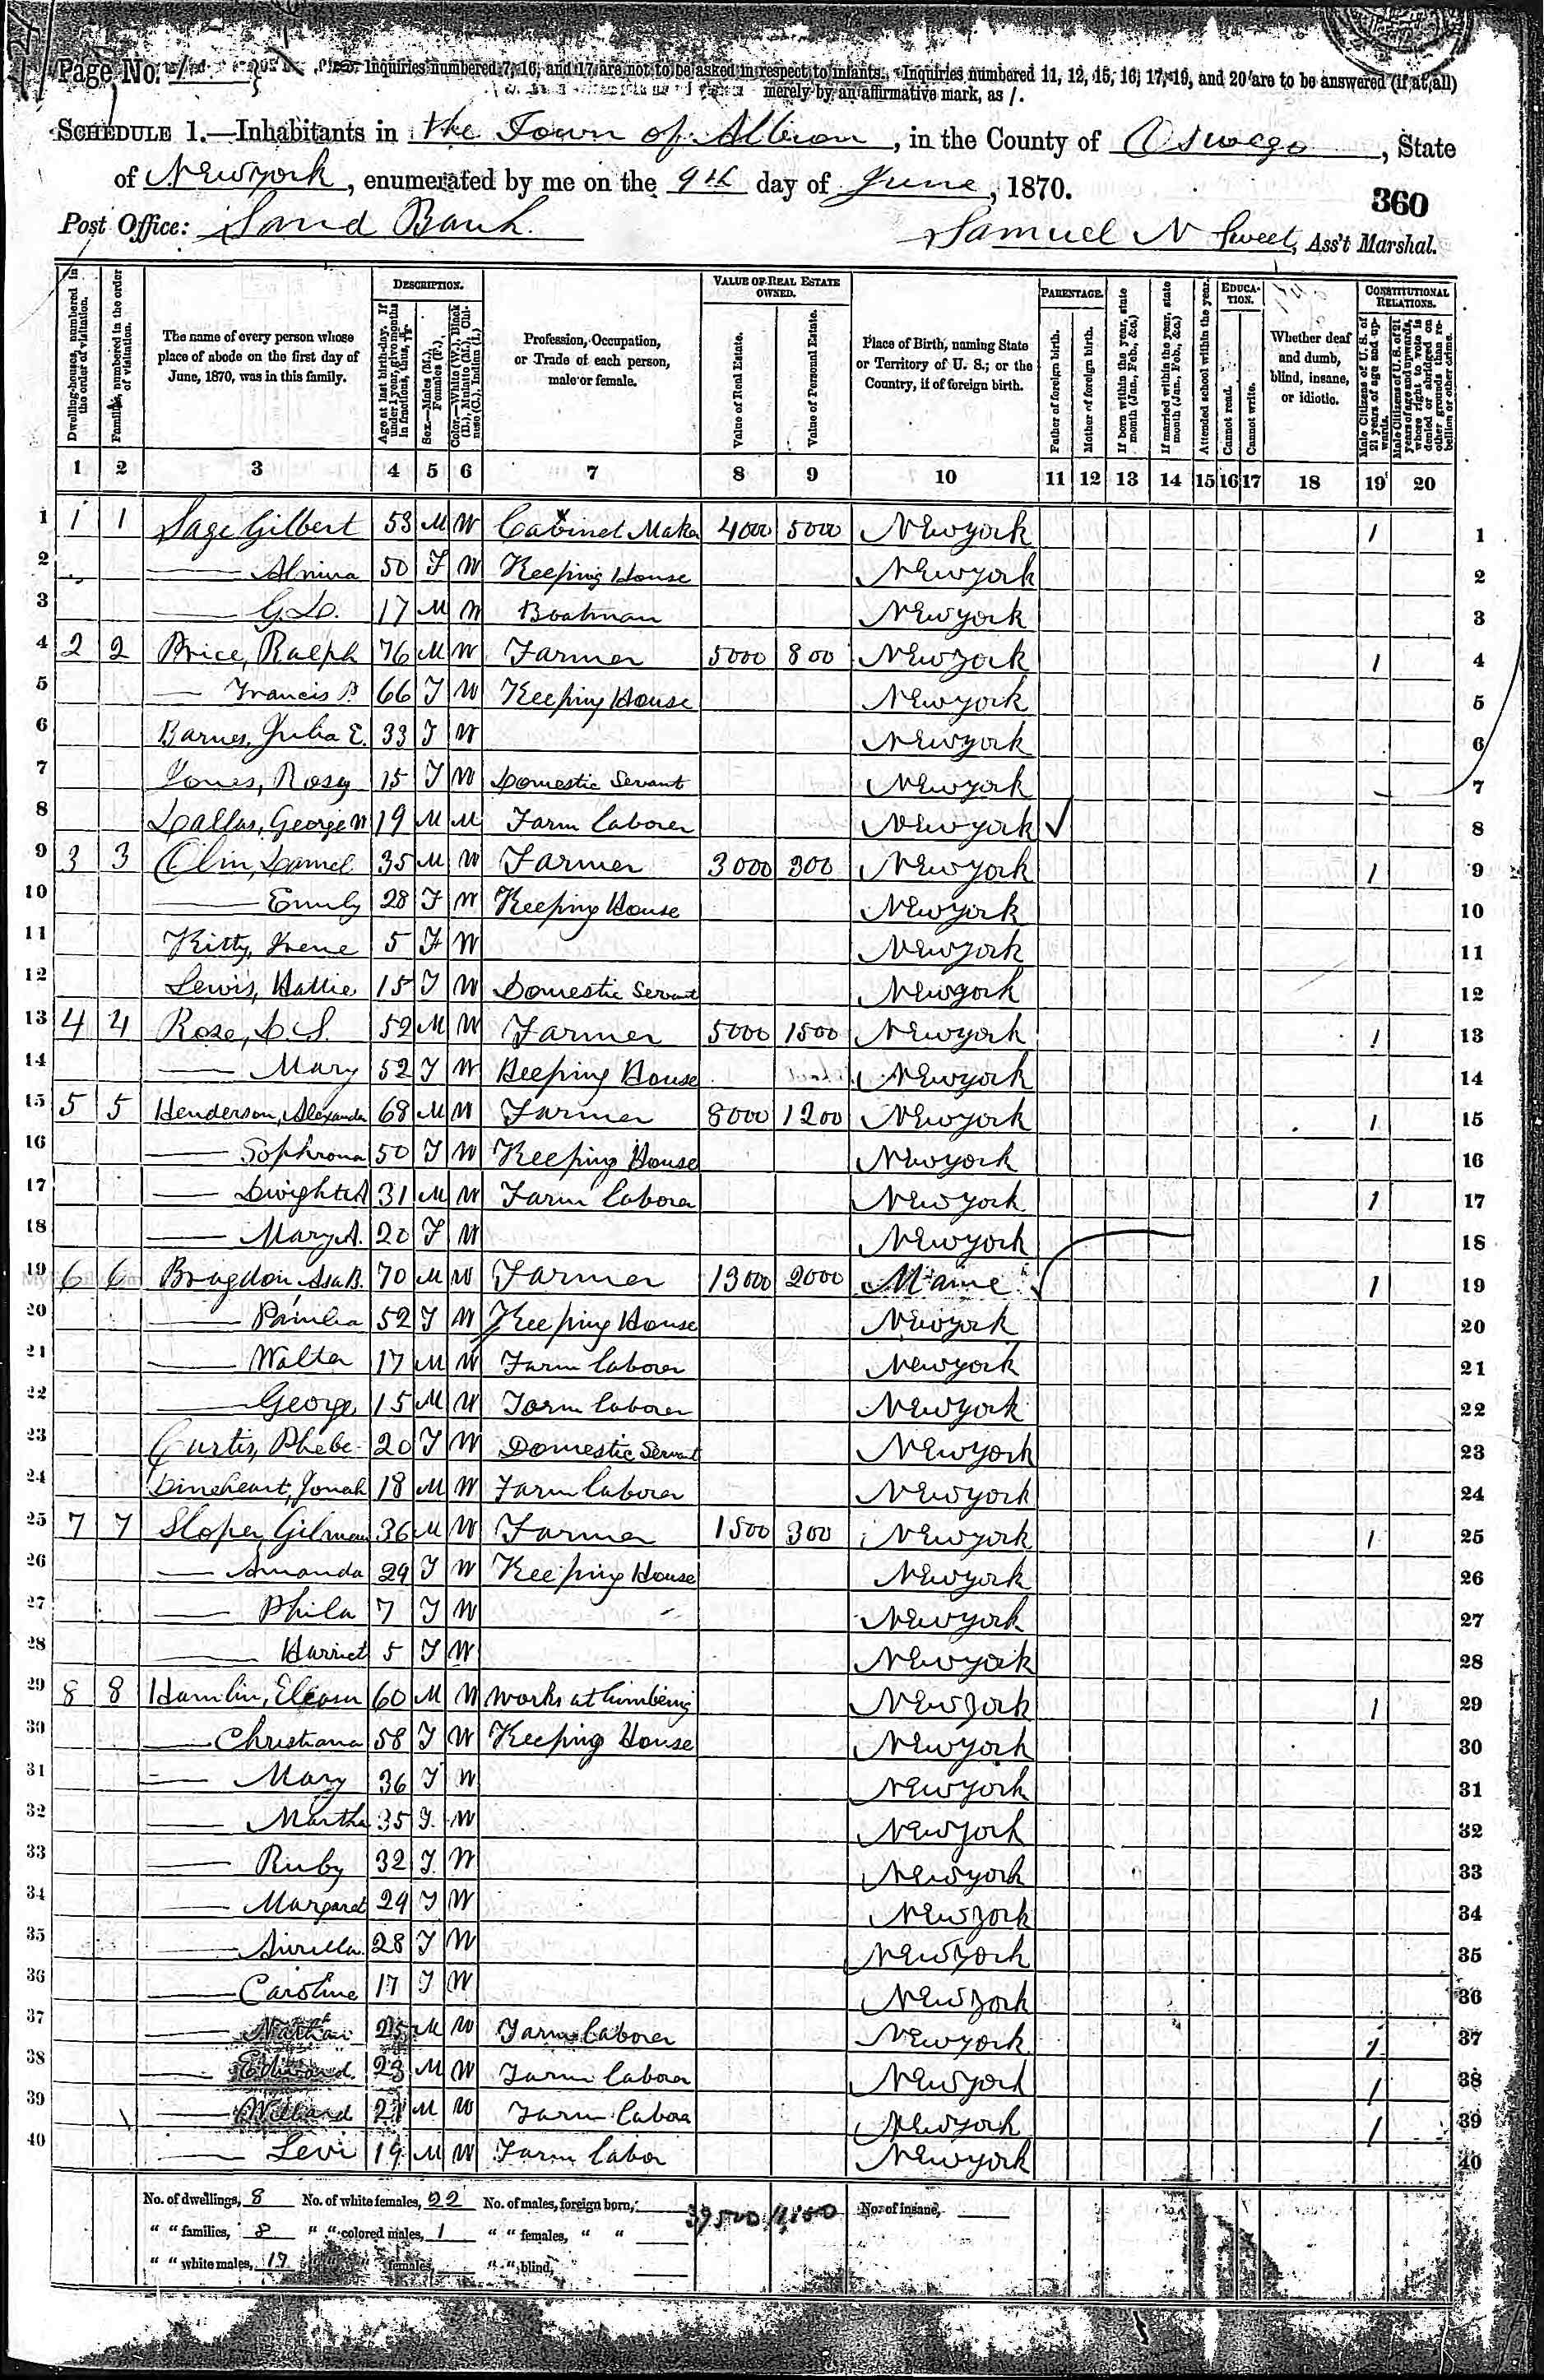 Page No. 1
Inquiries numbered 7, 16, and 17 are not to be asked in respect to infants. Inquiries numbered 11, 12, 15, 16, 17, 19, and 20 are to be answered (if at all)
merely by an affirmative mark, as /.
SCHEDULE 1.—Inhabitants in the Town of Albion, in the County of Oswego, State
of Newyork, enumerated by me on the 9th day of June, 1870.
360
Post Office: Sand Bank. Samuel N Sweet, Ass't Marshal.
Dwelling-houses, numbered in the order of visitation.
Families, numbered in the order of visitation.
The name of every person whose place of abode on the first day of June, 1870, was in this family.
DESCRIPTION.
Age at last birth-day. If under 1 year, give months in fractions, thus,
Sex.—Males (M.), Females (F.),
Color.—White (W.), Black (B.), Mulatto (M.), Chinese (C.), Indian (I.)
Profession, Occupation, or Trade of each person, male or female.
VALUE OF REAL ESTATE OWNED.
Value of Real Estate.
Value of Personal Estate.
Place of Birth, naming State or Territory of U. S.; or the Country, if of foreign birth.
PARENTAGE.
Father of foreign birth.
Mother of foreign birth.
If born within the year, state month (Jan., Feb., &c.)
If married within the year, state month (Jan., Feb., &c.)
Attended school within the year.
EDUCATION.
Cannot read.
Cannot write.
Whether deaf and dumb, blind, insane, or idiotic.
CONSTITUTIONAL RELATIONS.
Male Citizens of U. S. of 21 years of age and upwards.
Male Citizens of U. S. of 21 years of age and upwards, whose right to vote is denied or abridged on other grounds than rebellion or other crime.
1 2 3 4 5 6 7 8 9 10 11 12 13 14 15 16 17 18 19 20
1 1 1 Sage Gilbert 53 M W Cabinet Maker 4000 5000 Newyork 1 1
2 — Almira 50 F W Keeping House Newyork 2
3 — G.D. 17 M W Boatman Newyork 3
4 2 2 Price, Ralph 76 M W Farmer 5000 800 Newyork 1 4
5 — Francis B 66 F W Keeping House Newyork 5
6 Barnes, Julia E. 33 F W Newyork 6
7 Jones, Rosy 15 F W Domestic Servant Newyork 7
8 Dallas, George W 19 M M Farm laborer Newyork ✓ 8
9 3 3 Olin, Daniel 35 M W Farmer 3000 300 Newyork 1 9
10 — Emily 28 F W Keeping House Newyork 10
11 Kitty, Irene 5 F W Newyork 11
12 Lewis, Hattie 15 F W Domestic Servant Newyork 12
13 4 4 Rose, D.S. 52 M W Farmer 5000 1500 Newyork 1 13
14 — Mary 52 F W Keeping House Newyork 14
15 5 5 Henderson, Alexander 68 M W Farmer 8000 1200 Newyork 1 15
16 — Sophrona 50 F W Keeping House Newyork 16
17 — Dwight A 31 M W Farm laborer Newyork 1 17
18 — Mary A. 20 F W Newyork 18
19 6 6 Bragdon, Asa B. 70 M W Farmer 13000 2000 Maine ✓ 1 19
20 — Pamelia 52 F W Keeping House Newyork 20
21 — Walter 17 M W Farm laborer Newyork 21
22 — George 15 M W Farm laborer Newyork 22
23 Curtis, Phebe 20 F W Domestic Servant Newyork 23
24 Dineheart, Jonah 18 M W Farm laborer Newyork 24
25 7 7 Sloper, Gilman 36 M W Farmer 1500 300 Newyork 1 25
26 — Amanda 29 F W Keeping House Newyork 26
27 — Phila 7 F W Newyork 27
28 — Harriet 5 F W Newyork 28
29 8 8 Hamlin, 60 M W works at lumbering Newyork 1 29
30 — Christiana 58 F W Keeping House Newyork 30
31 — Mary 36 F W Newyork 31
32 — Martha 35 F. W Newyork 32
33 — Ruby 32 F. W Newyork 33
34 — Margaret 29 F W Newyork 34
35 — 28 F W Newyork 35
36 — Caroline 17 F W Newyork 36
37 — Nathan 25 M W Farm laborer Newyork 1 37
38 — Edward 23 M W Farm laborer Newyork 1 38
39 — Willard 21 M W Farm labora Newyork 1 39
40 — Levi 19 M W Farm labor Newyork 40
No. of dwellings, 8 No. of white females, 22 No. of males, foreign born, 39500 11,100 No. of insane,
" " families, 8 " " colored males, 1 " " females, " "
" " white males, 17 " " females, " " blind,